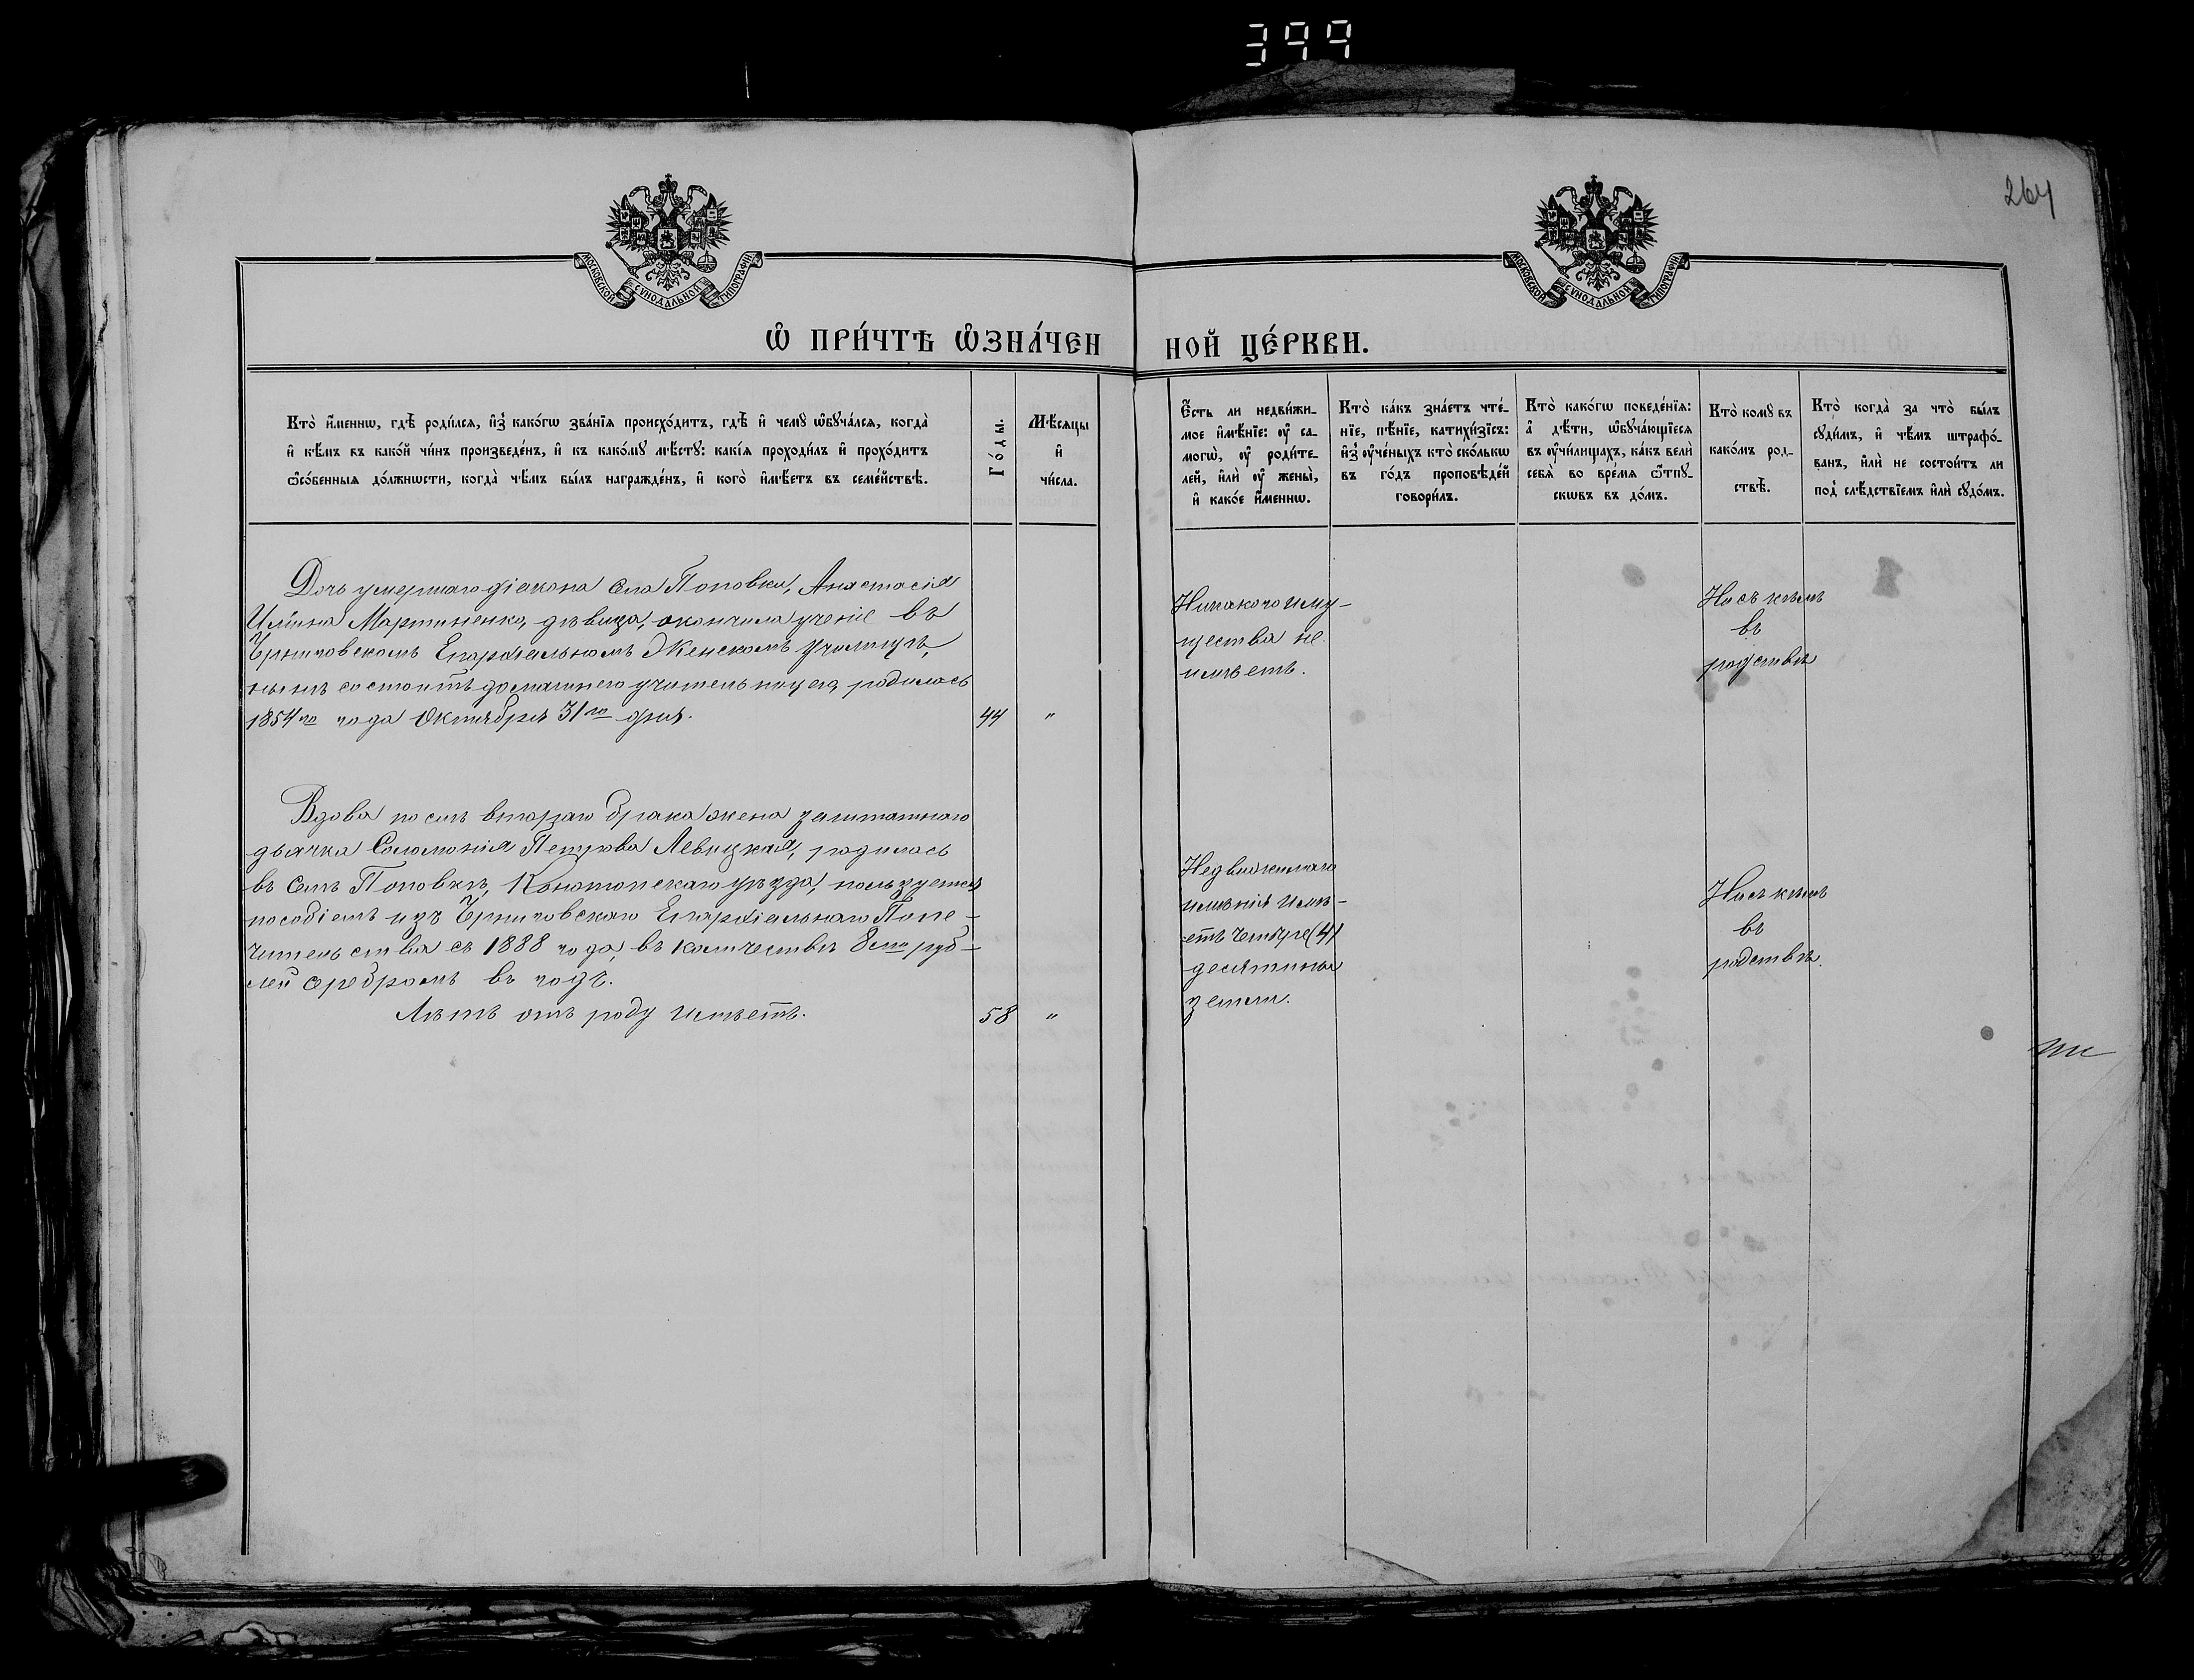 399
264
МОСКОВСКОЙ СѴНОДАЛЬНОЙ ТИПОГРАФІИ
МОСКОВСКОЙ СѴНОДАЛЬНОЙ ТИПОГРАФІИ
Ѡ҆ ПРИ́ЧТѢ Ѡ҆ЗНА́ЧЕН НОЙ ЦЕ́РКВИ.
Кто̀ и҆́меннѡ, гдѣ̀ роди́лсѧ, и҆з̾ како́гѡ зва́нїѧ происхо́дитъ, гдѣ̀ и҆ чемꙋ̀ ѡ҆бꙋча́лсѧ, когда̀
и҆ кѣ́мъ въ како́й чи́нъ произведе́нъ, и҆ къ како́мꙋ мѣ́стꙋ: какі́ѧ проходи́лъ и҆ прохо́дитъ
ѻ҆со́бенныѧ до́лжнѡсти, когда̀ чѣ́мъ бы́лъ награжде́нъ, и҆ кого̀ и҆мѣ́етъ въ семе́йствѣ.
Го́ды.
Мѣ́сѧцы
и҆
чи́сла.
Є҆́сть ли недви́жи-
мое и҆мѣ́нїе: ᲂу҆ са-
могѡ̀, ᲂу҆ роди́те-
лей, и҆лѝ ᲂу҆ жены̀,
и҆ како́е и҆́меннѡ.
Кто̀ ка́къ зна́етъ чте́-
нїе, пѣ́нїе, катихи́зїсъ:
и҆з̾ ᲂу҆че́ныхъ кто̀ ско́лькѡ
въ го́дъ проповѣ́дей
говори́лъ.
Кто̀ како́гѡ поведе́нїѧ:
а҆ дѣ́ти, ѡ҆бꙋча́ющїесѧ
въ ᲂу҆чи́лищахъ, ка́къ велѝ
себѧ̀ во вре́мѧ ѿпꙋ-
скѡвъ въ до́мъ.
Кто̀ комꙋ̀ въ
како́мъ род-
ствѣ̀.
Кто̀ когда̀ за что̀ бы́лъ
сꙋди́мъ, и҆ чѣ́мъ штрафо́-
ванъ, и҆лѝ не состои́тъ ли
под̾ слѣ́дствїемъ и҆лѝ сꙋдо́мъ.
Дочь умершаго діакона села Поповки, Анастасія
Ильина Мартиненко, дѣвица, окончила ученіе въ
Черниговскомъ Епархіальномъ Женскомъ Училищѣ,
нынѣ состоитъ домашнею учительницею, родилась
1854го года Октября 31го дня.
44 "
Никакого иму-
щества не
имѣетъ.
Ни съ кѣмъ
въ
родствѣ
Вдова послѣ втораго брака жена заштатнаго
дьячка Соломонія Петрова Левицкая, родилась
въ селѣ Поповкѣ, Конотопскаго уѣзда, пользуется
пособіемъ изъ Черниговскаго Епархіальнаго Попе-
чительства съ 1888 года, въ количествѣ 8ми руб-
лей серебромъ въ годъ.
Лѣтъ отъ роду имѣетъ.
58 "
Недвижимаго
имѣнія имѣ-
етъ четыре (4)
десятины
земли.
Ни съ кѣмъ
въ
родствѣ.